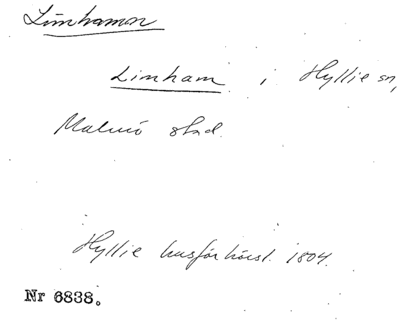 Limhamn
Limham i Hyllie sn,
Malmö stad.
Hyllie husförhörsl. 1804.
Nr 6838.